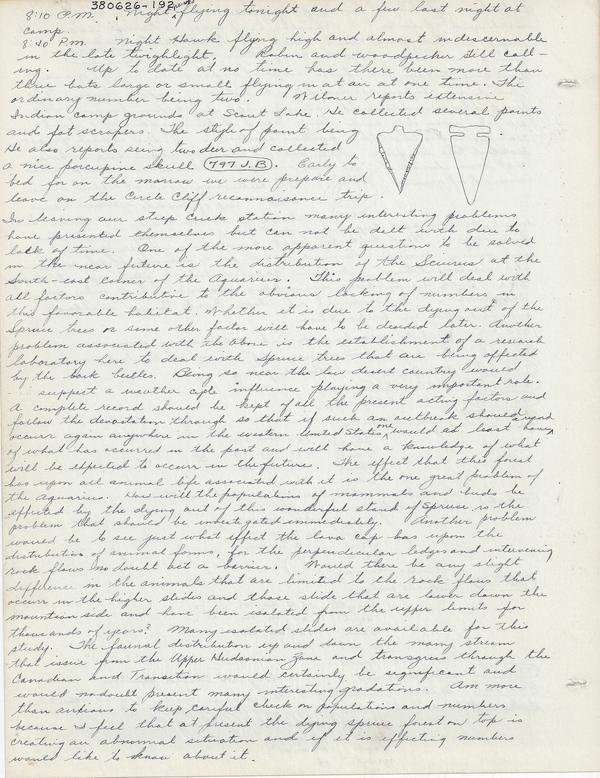 380626-192
8:10 P.M. Night Hawks flying tonight and a few last night at
camp.
8:40 P.M. Night Hawk flying high and almost indescernable
in the late twighlight, Robin and woodpecker still call-
ing. Up to date at no time has there been more than
three bats large or small flying in at air at one time. The
ordinary number being two. reports extensive
Indian camp grounds at Scout Lake. He collected several points
and fat scrapers. The style of point being
He also reports seing two deer and collected
a nice porcupine skull (797 J.B). Early to
bed for on the morrow we were prepare and
leave on the Circle Cliff reconnaisance trip.
In leaving our steep Creek station many interesting problems
have presented themselves but can not be delt with due to
lack of time. One of the more apparent questions to be solved
in the near future is the distribution of the Sciurus at the
South-east corner of the Aquarius. This problem will deal with
all factors contributive to the obvious lacking of numbers in
this favorable habitat. Whether it is due to the dying out of the
Spruce trees or some other factor will have to be decided later. Another
problem associated with the above is the establishment of a research
laboratory here to deal with Spruce trees that are being affected
by the bark beetles. Being so near the low desert country would
suspect a weather cycle influence playing a very important role.
A complete record should be kept of all the present acting factors and
follow the devastation through so that if such an outbreak should
occurr again anywhere in the western United States one would at least have record
of what has occurred in the past and will have a knowledge of what
will be expected to occurr in the future. The effect that this forest
has upon all animal life associated with it is the one great problem of
the Aquarius. How will the populations of mammals and birds be
effected by the dying out of this wonderful stand of Spruce is the
problem that should be investigated immediately. Another problem
would be to see just what effect the lava cap has upon the
distribution of animal forms, for the perpendicular ledges and intervening
rock flows no doubt act a barrier. Would there be any slight
difference in the animals that are limited to the rock flows that
occurr in the higher slides and those slide that are lower down the
mountain side and have been isolated from the upper limits for
thousands of years? Many isolated slides are available for this
study. The faunal distribution up and down the many stream
that issue from the Upper Hudsonian Zone and transgress through the
Canadian and Transition would certainly be significant and
would no doubt present many interesting gradations. Am more
than anxious to keep careful check on populations and numbers
because I feel that at present the dying spruce forest on top is
creating an abnormal situation and if it is effecting numbers
would like to know about it.